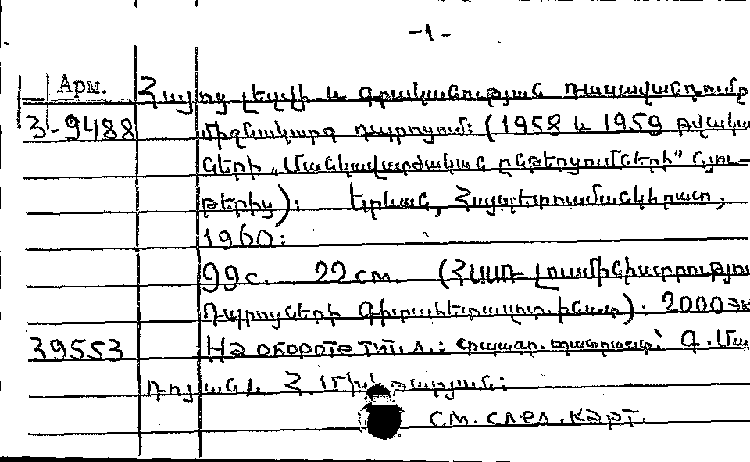 -1-
Арм. Հայոց լեզվի և գրականության դասավանդումը
3-9488 միջնակարգ դպրոցում: (1958 և 1959 թվակա
ների „Մանկավարժական ընթերցումների" նյու-
թերից): Երևան, Հայպետուսմանկհրատ,
1960:
99с. 22см. (ՀՍՍՌ Լուսմինիստրություն
Դպրոցների գիտահետազոտ. ինստ.). 2000 эк
39553 На обороте тит. л.: Հրպար. պատրաստ՝ Գ. Մա
դոյան և Հ.
см. след. карт.